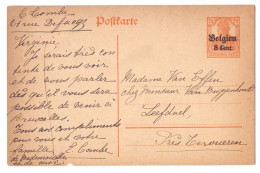 E. Combe
61 rue Defacqz
Postkarte
Belgien
8 Cent.
Virginie,
Je serais très con
tente de vous voir
et de vous parler
dès qu'il vous sera
possible de venir à
Bruxelles.
Tous nos compliments
pour vous et votre
famille
E. Combe
Madame Van
chez Monsieur Van
Leefdael
Près Tervueren